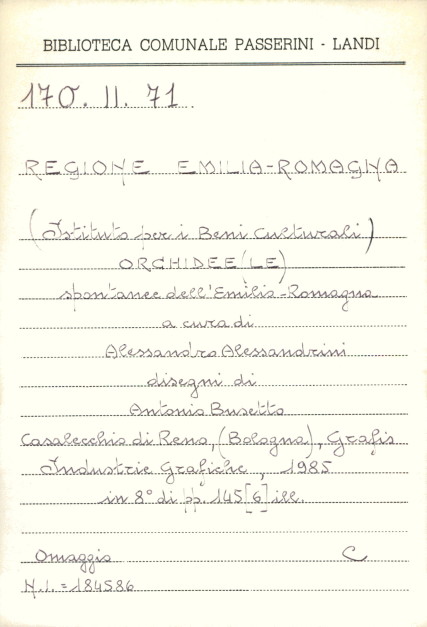 BIBLIOTECA COMUNALE PASSERINI - LANDI
170. II. 71.
REGIONE EMILIA-ROMAGNA
(Istituto per i Beni Culturali)
ORCHIDEE (LE)
spontanee dell'Emilia-Romagna
a cura di
Alessandro Alessandrini
disegni di
Antonio Busetto
Casalecchio di Reno, (Bologna), Grafis
Industrie Grafiche, 1985
in 8° di pp. 145[6] ill.
Omaggio C
N.I. = 184586